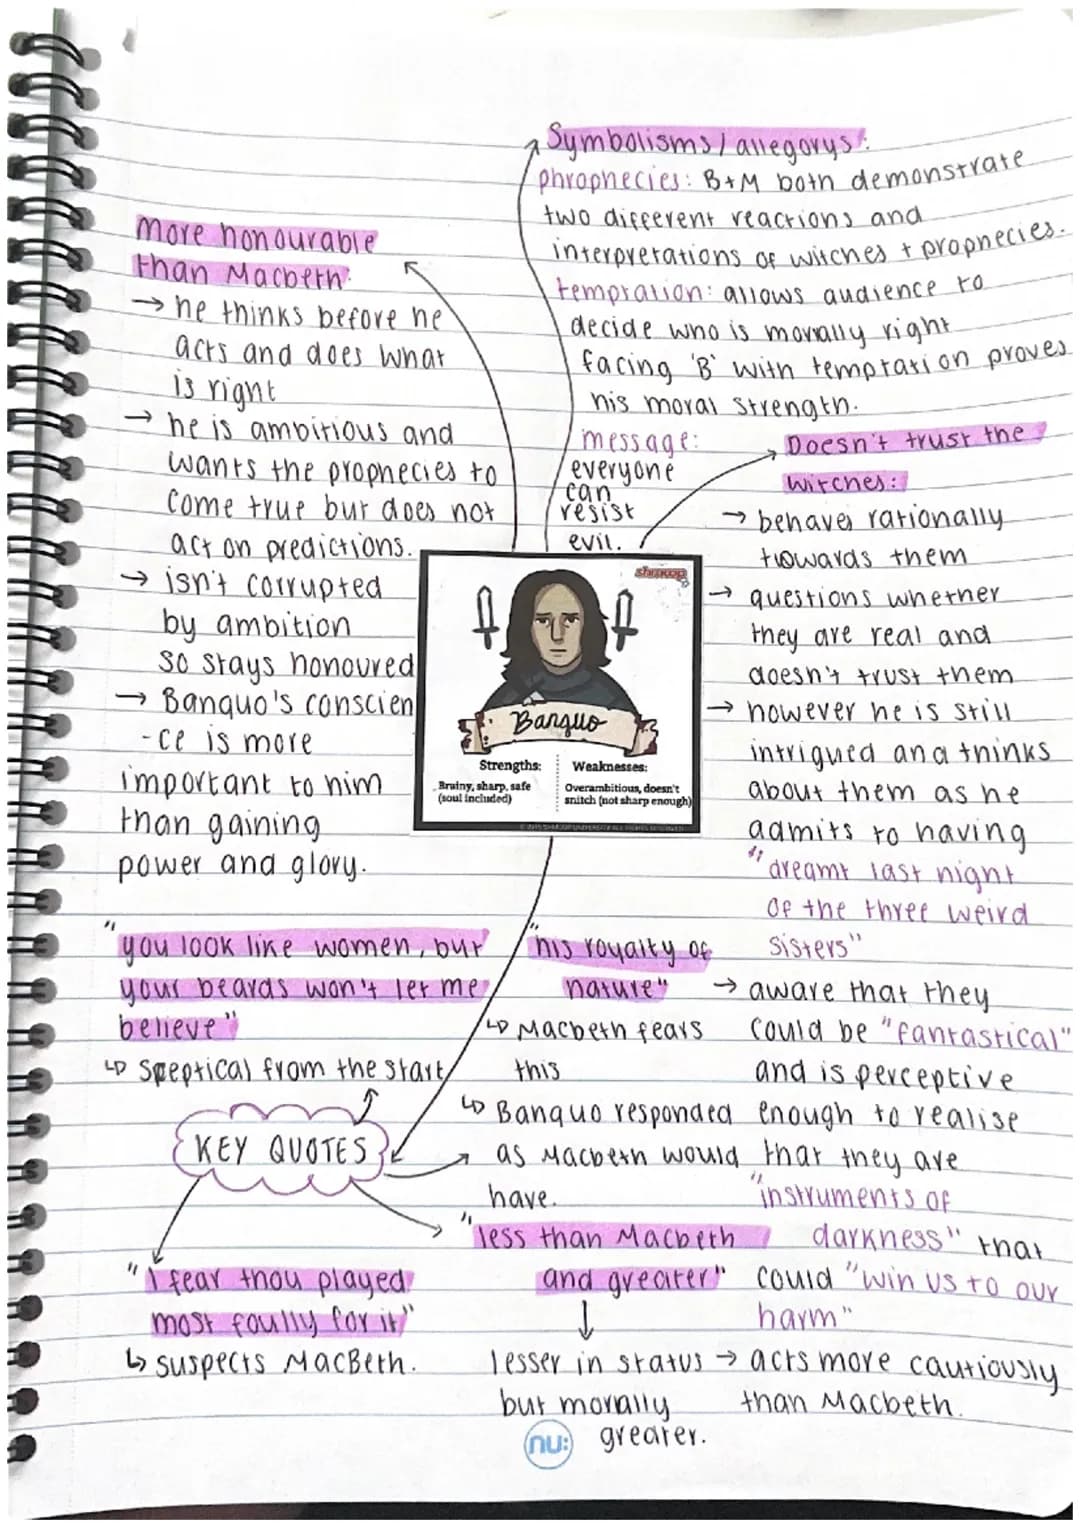 Symbolisms/allegorys:
phrophecies: B+M both demonstrate
two different reactions and
interpretations of witches + prophecies.
temptation: allows audience to
decide who is morally right
facing 'B' with temptation proves
his moral strength.
message:
everyone
can
resist
evil.
More honourable
than Macbeth:
→ he thinks before he
acts and does what
is right
→ he is ambitious and
wants the prophecies to
come true but does not
act on predictions.
→ isn't corrupted
by ambition
so stays honoured
→ Banquo's conscien
-ce is more
important to him
than gaining
power and glory.
Doesn't trust the
witches:
→ behaves rationally
towards them
→ questions whether
they are real and
doesn't trust them
→ however he is still
intrigued and thinks
about them as he
admits to having
"dreamt last night
of the three weird
sisters"
→ aware that they
could be "fantastical"
and is perceptive
enough to realise
that they are
"instruments of
darkness" that
could "win us to our
harm"
→ acts more cautiously
than Macbeth.
shmoop
Banquo
Strengths:
Brainy, sharp, safe
(soul included)
Weaknesses:
Overambitious, doesn't
snitch (not sharp enough)
"you look like women, but
your beards won't let me
believe"
↳ Sceptical from the start
KEY QUOTES
"his royalty of
nature"
↳ Macbeth fears
this
↳ Banquo responded
as Macbeth would
have.
"I fear thou played
most foully for it"
↳ suspects MacBeth.
"less than Macbeth
and greater"
↓
lesser in status
but morally
greater.
nu: